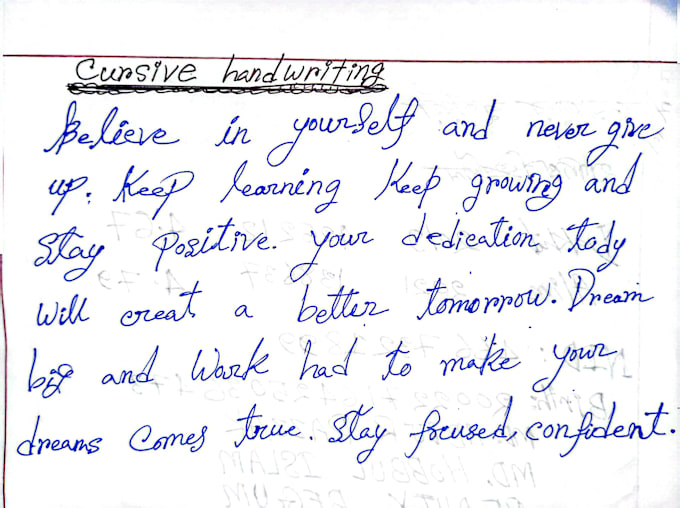 Cursive handwriting
Believe in yourself and never give
up. Keep learning Keep growing and
Stay Positive. your dedication tody
Will creat a better tomorrow. Dream
big and Work had to make your
dreams Comes true. Stay focused, confident.
MD. HOBBUL ISLAM
BEGUM